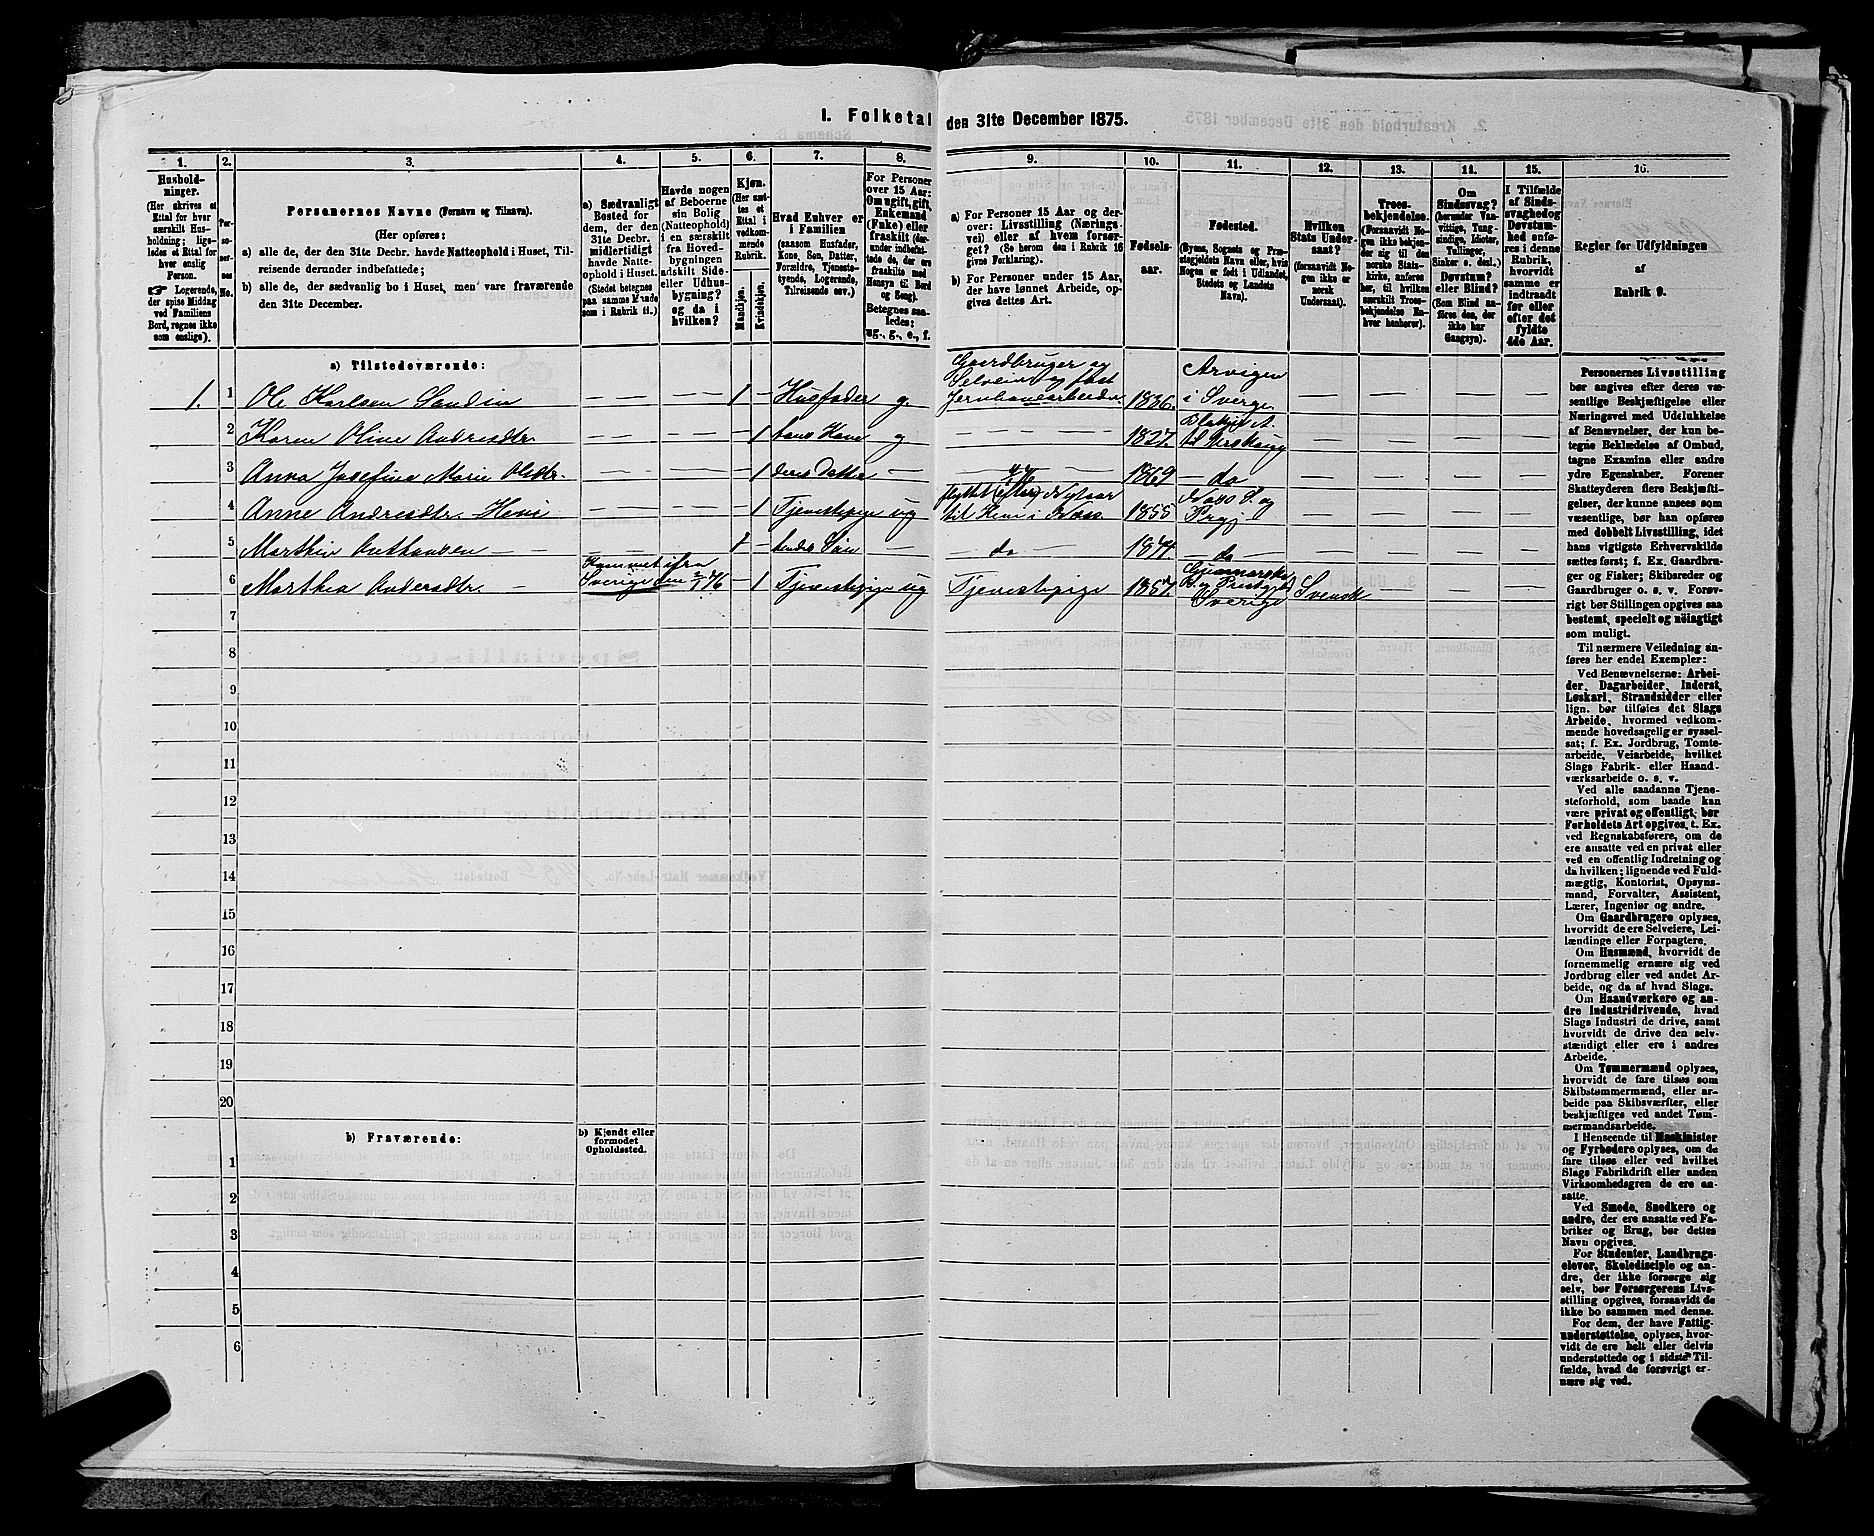 I. Folketal den 31te December 1875.
1. 2. 3. 4. 5. 6. 7. 8. 9. 10. 11. 12. 13. 14. 15. 16.
Hushold-
ninger.
(Her skrives et
Ettal for hver
særskilt Hus-
holdning; lige-
ledes et Ettal for
hver enslig
Person.
☛ Logerende,
der spise Middag
ved Familiens
Bord, regnes ikke
som enslige).
Per-
so-
ner-
nes
No.
Personernes Navne (Fornavn og Tilnavn).
(Her opføres:
a) alle de, der den 31te Decbr. havde Natteophold i Huset, Til-
reisende derunder indbefattede;
b) alle de, der sædvanlig bo i Huset, men vare fraværende
den 31te December.
a) Sædvanligt
Bosted for
dem, der den
31te Decbr.
midlertidigt
havde Natte-
ophold i Huset.
(Stedet betegnes
paa samme Maade
som i Rubrik 11.)
Havde nogen
af Beboerne
sin Bolig
(Natteophold)
i en særskilt
fra Hoved-
bygningen
adskilt Side-
eller Udhus-
bygning?
og da i
hvilken?
Kjøn.
(Her sæt-
tes et
Ettal i
vedkom-
mende
Rubrik.
Mandkjøn.
Kvindekjøn.
Hvad Enhver er
i Familien
(saasom Husfader,
Kone, Søn, Datter,
Forældre, Tjeneste-
tyende, Logerende,
Tilreisende osv.)
For Personer
over 15 Aar:
Om ugift, gift,
Enkemand
(Enke) eller
fraskilt (der-
under indbefat-
tede de, der ere
fraskilte med
Hensyn til Bord
og Seng).
Betegnes saa-
ledes:
ug., g., e., f.
a) For Personer 15 Aar og der-
over: Livsstilling (Nærings-
vei) eller af hvem forsør-
get? (Se herom den i Rubrik 16
givne Forklaring).
b) For Personer under 15 Aar,
der have lønnet Arbeide, op-
gives dettes Art.
Fødsels-
aar.
Fødested.
(Byens, Sognets og Præ-
stegjeldets Navn eller, hvis
Nogen er født i Udlandet,
Stedets og Landets
Navn).
Hvilken
Stats Under-
saat?
(forsaavidt No-
gen ikke er
norsk
Undersaat).
Troes-
bekjendelse.
(Forsaavidt No-
gen ikke bekjen-
der sig til den
norske Stats-
kirke, anføres
her, til hvilken
særskilt Troes-
bekjendelse En-
hver henhører).
Om
Sindssvag?
(herunder Van-
vittige, Tung-
sindige, Idioter,
Tullinger,
Sinker o. desl.)
Døvstum?
eller Blind?
(Som Blind an-
føres den, der
ikke har
Gangsyn).
I Tilfælde
af Sinds-
svaghed og
Døvstum-
hed anfø-
res i denne
Rubrik,
hvorvidt
samme er
indtraadt
før eller
efter det
fyldte
4de Aar.
Regler for Udfyldningen
af
Rubrik 9.
a) Tilstedeværende:
1. 1 Ole Karlsen Sandin — — 1 — Husfader g. Gaardbruger og Selveier og fast Jernbanearbeider 1836. Arvigen i Sverge. — — — —
2 Karen Oline Andresdtr — — — 1 hans Kone g — — — 1827. til Urskoug — — — —
3 Anna Josefine Marie Olsdtr. — — — 1 deres Datter — 1869 — do — — — —
4 Anne Andresdtr. — — 1 Tjenestepige ug 1855 — — — —
5 Marthin — — — 1 — hendes Søn — — do — 1874 — do — — — — —
6 Marthea Andersdtr. — Kommet ifra Sverige — 1 Tjenestepige ug Tjenestepige 1857. Sverige Svensk — — —
7
8
9
10
11
12
13
14
15
16
17
18
19
20
b) Fraværende:
b) Kjendt eller
formodet
Opholdssted.
1
2
3
4
5
6
Personernes Livsstilling
bør angives efter deres væ-
sentlige Beskjæftigelse eller
Næringsvei med Udelukkelse
af Benævnelser, der kun be-
tegne Beklædelse af Ombud,
tagne Examina eller andre
ydre Egenskaber. Forener
Skatteyderen flere Beskjæfti-
gelser, der kunne ansees som
væsentlige, bør han opføres
med dobbelt Livsstilling, idet
hans vigtigste Erhvervskilde
sættes først; f. Ex. Gaardbru-
ger og Fisker; Skibsreder og
Gaardbruger o. s. v. Forøv-
rigt bør Stillingen opgives saa
bestemt, specielt og nøiagtigt
som muligt.
Til nærmere Veiledning an-
føres her endel Exempler:
Ved Benævnelserne: Arbei-
der, Dagarbeider, Inderst,
Løskarl, Strandsidder eller
lign. bør tilføies det Slags
Arbeide, hvormed vedkom-
mende hovedsagelig er syssel-
sat; f. Ex. Jordbrug, Tomte-
arbeide, Veiarbeide, hvilket
Slags Fabrik- eller Haand-
værksarbeide o. s. v.
Ved alle saadanne Tjene-
steforhold, som baade kan
være privat og offentligt, bør
Forholdets Art opgives, t. Ex.
ved Regnskabsførere, om de
ere ansatte ved en privat eller
ved en offentlig Indretning og
da hvilken; lignende ved Fuld-
mægtig, Kontorist, Opsyns-
mand, Forvalter, Assistent,
Lærer, Ingeniør og andre.
Om Gaardbrugere oplyses,
hvorvidt de ere Selveiere, Lei-
lændinge eller Forpagtere.
Om Husmænd, hvorvidt de
fornemmelig ernære sig ved
Jordbrug eller ved andet Ar-
beide, og da af hvad Slags.
Om Haandværkere og an-
dre Industridrivende, hvad
Slags Industri de drive, samt
hvorvidt de drive den selv-
stændigt eller ere i andres
Arbeide.
Om Tømmermænd oplyses,
hvorvidt de fare tilsøs som
Skibstømmermænd, eller ar-
beide paa Skibsværfter, eller
beskjæftiges ved andet Tøm-
mermandsarbeide.
I Henseende til Maskinister
og Fyrbødere oplyses, om de
fare tilsøs eller ved hvilket
Slags Fabrikdrift eller anden
Virksomhedsgren de ere an-
satte.
Ved Smede, Snedkere og
andre, der ere ansatte ved Fa-
briker og Brug, bør dettes
Navn opgives.
For Studenter, Landbrugs-
elever, Skoledisciple og an-
dre, der ikke forsørge sig
selv, bør Forsørgerens Livs-
stilling opgives, forsaavidt de
ikke bo sammen med denne.
For dem, der have Fattig-
understøttelse, oplyses, hvor-
vidt de ere helt eller delvis
understøttede og i sidste Til-
fælde, hvad de forøvrigt er-
nære sig ved.